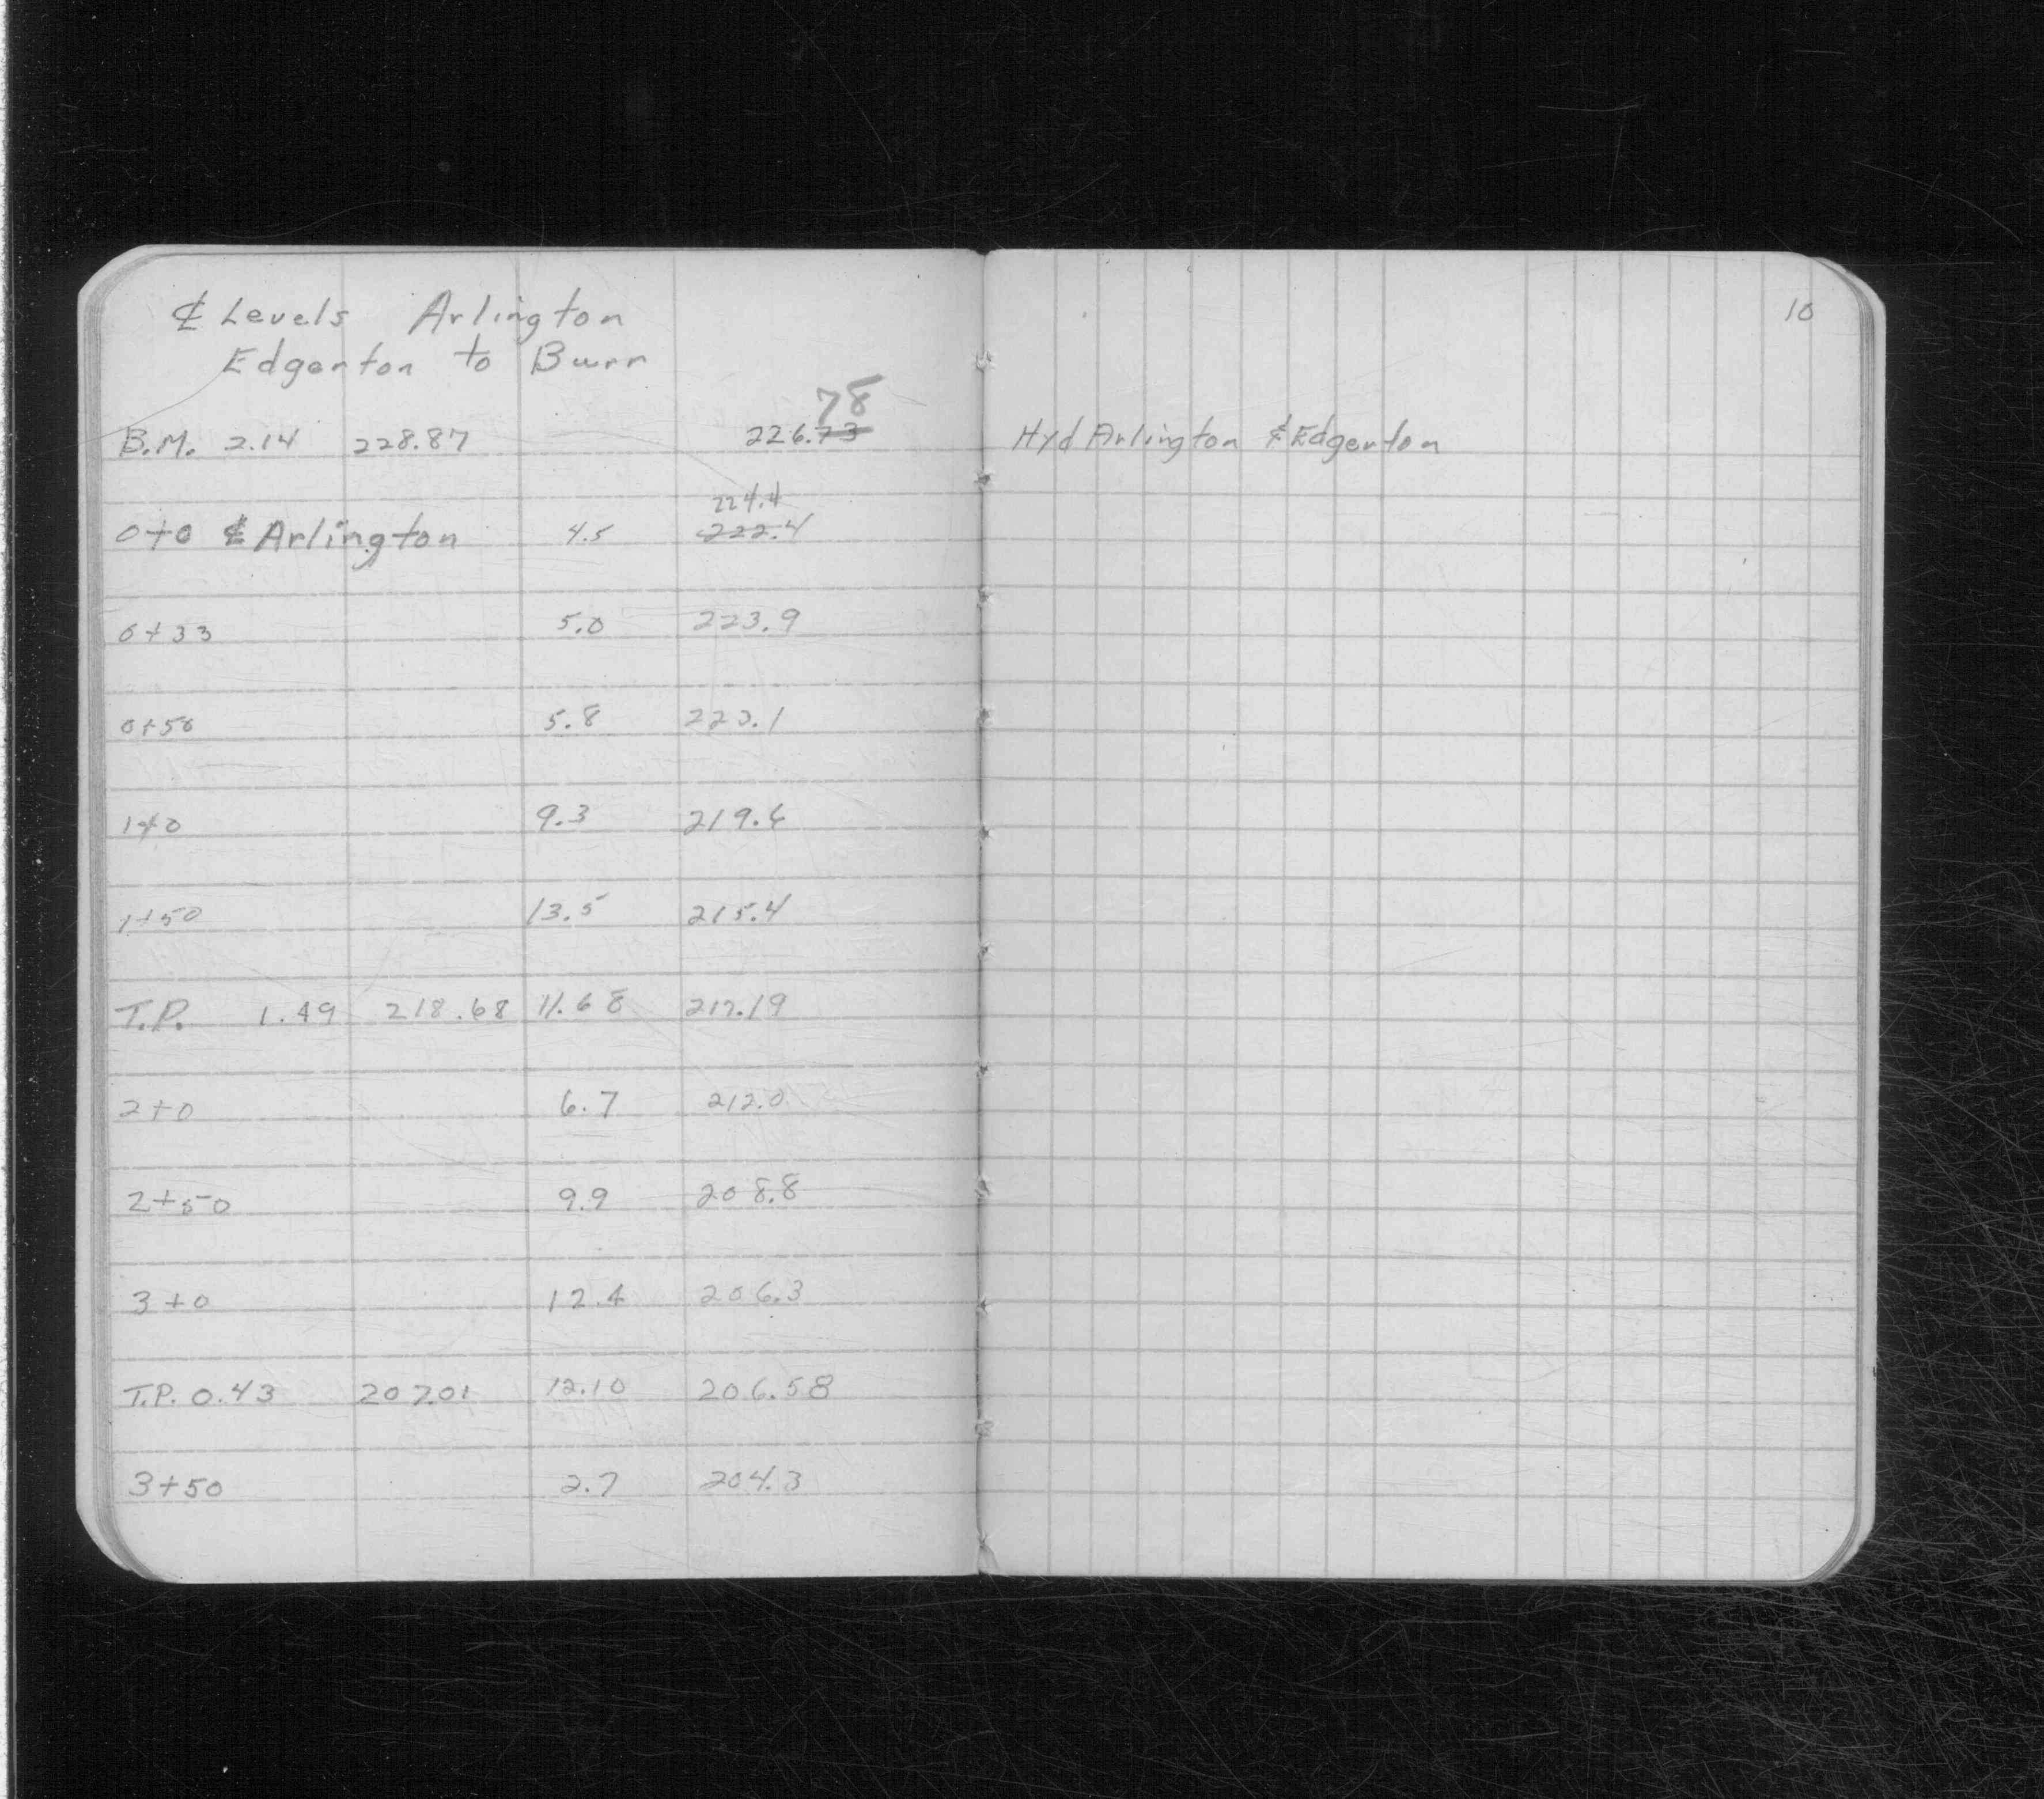 ℄ Levels Arlington
Edgerton to Burr
78
B.M. 2.14 228.87 226.73 Hyd Arlington & Edgerton
224.4
0+0 ℄ Arlington 4.5 222.4
0+33 5.0 223.9
0+50 5.8 223.1
1+0 9.3 219.6
1+50 13.5 215.4
T.P. 1.49 218.68 11.68 217.19
2+0 6.7 212.0
2+50 9.9 208.8
3+0 12.4 206.3
T.P. 0.43 207.01 12.10 206.58
3+50 2.7 204.3
10